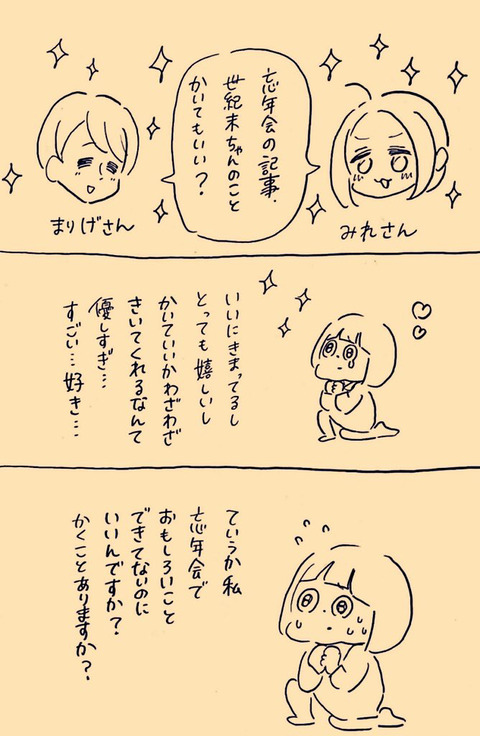 忘年会の記事、
世紀末ちゃんのこと
かいてもいい？
みれさん
まりげさん
いいにきまってるし
とっても嬉しいし
かいていいかわざわざ
きいてくれるなんて
優しすぎ…
すごい…好き…
ていうか私
忘年会で
おもしろいこと
できてないのに
いいんですか？
かくことありますか？